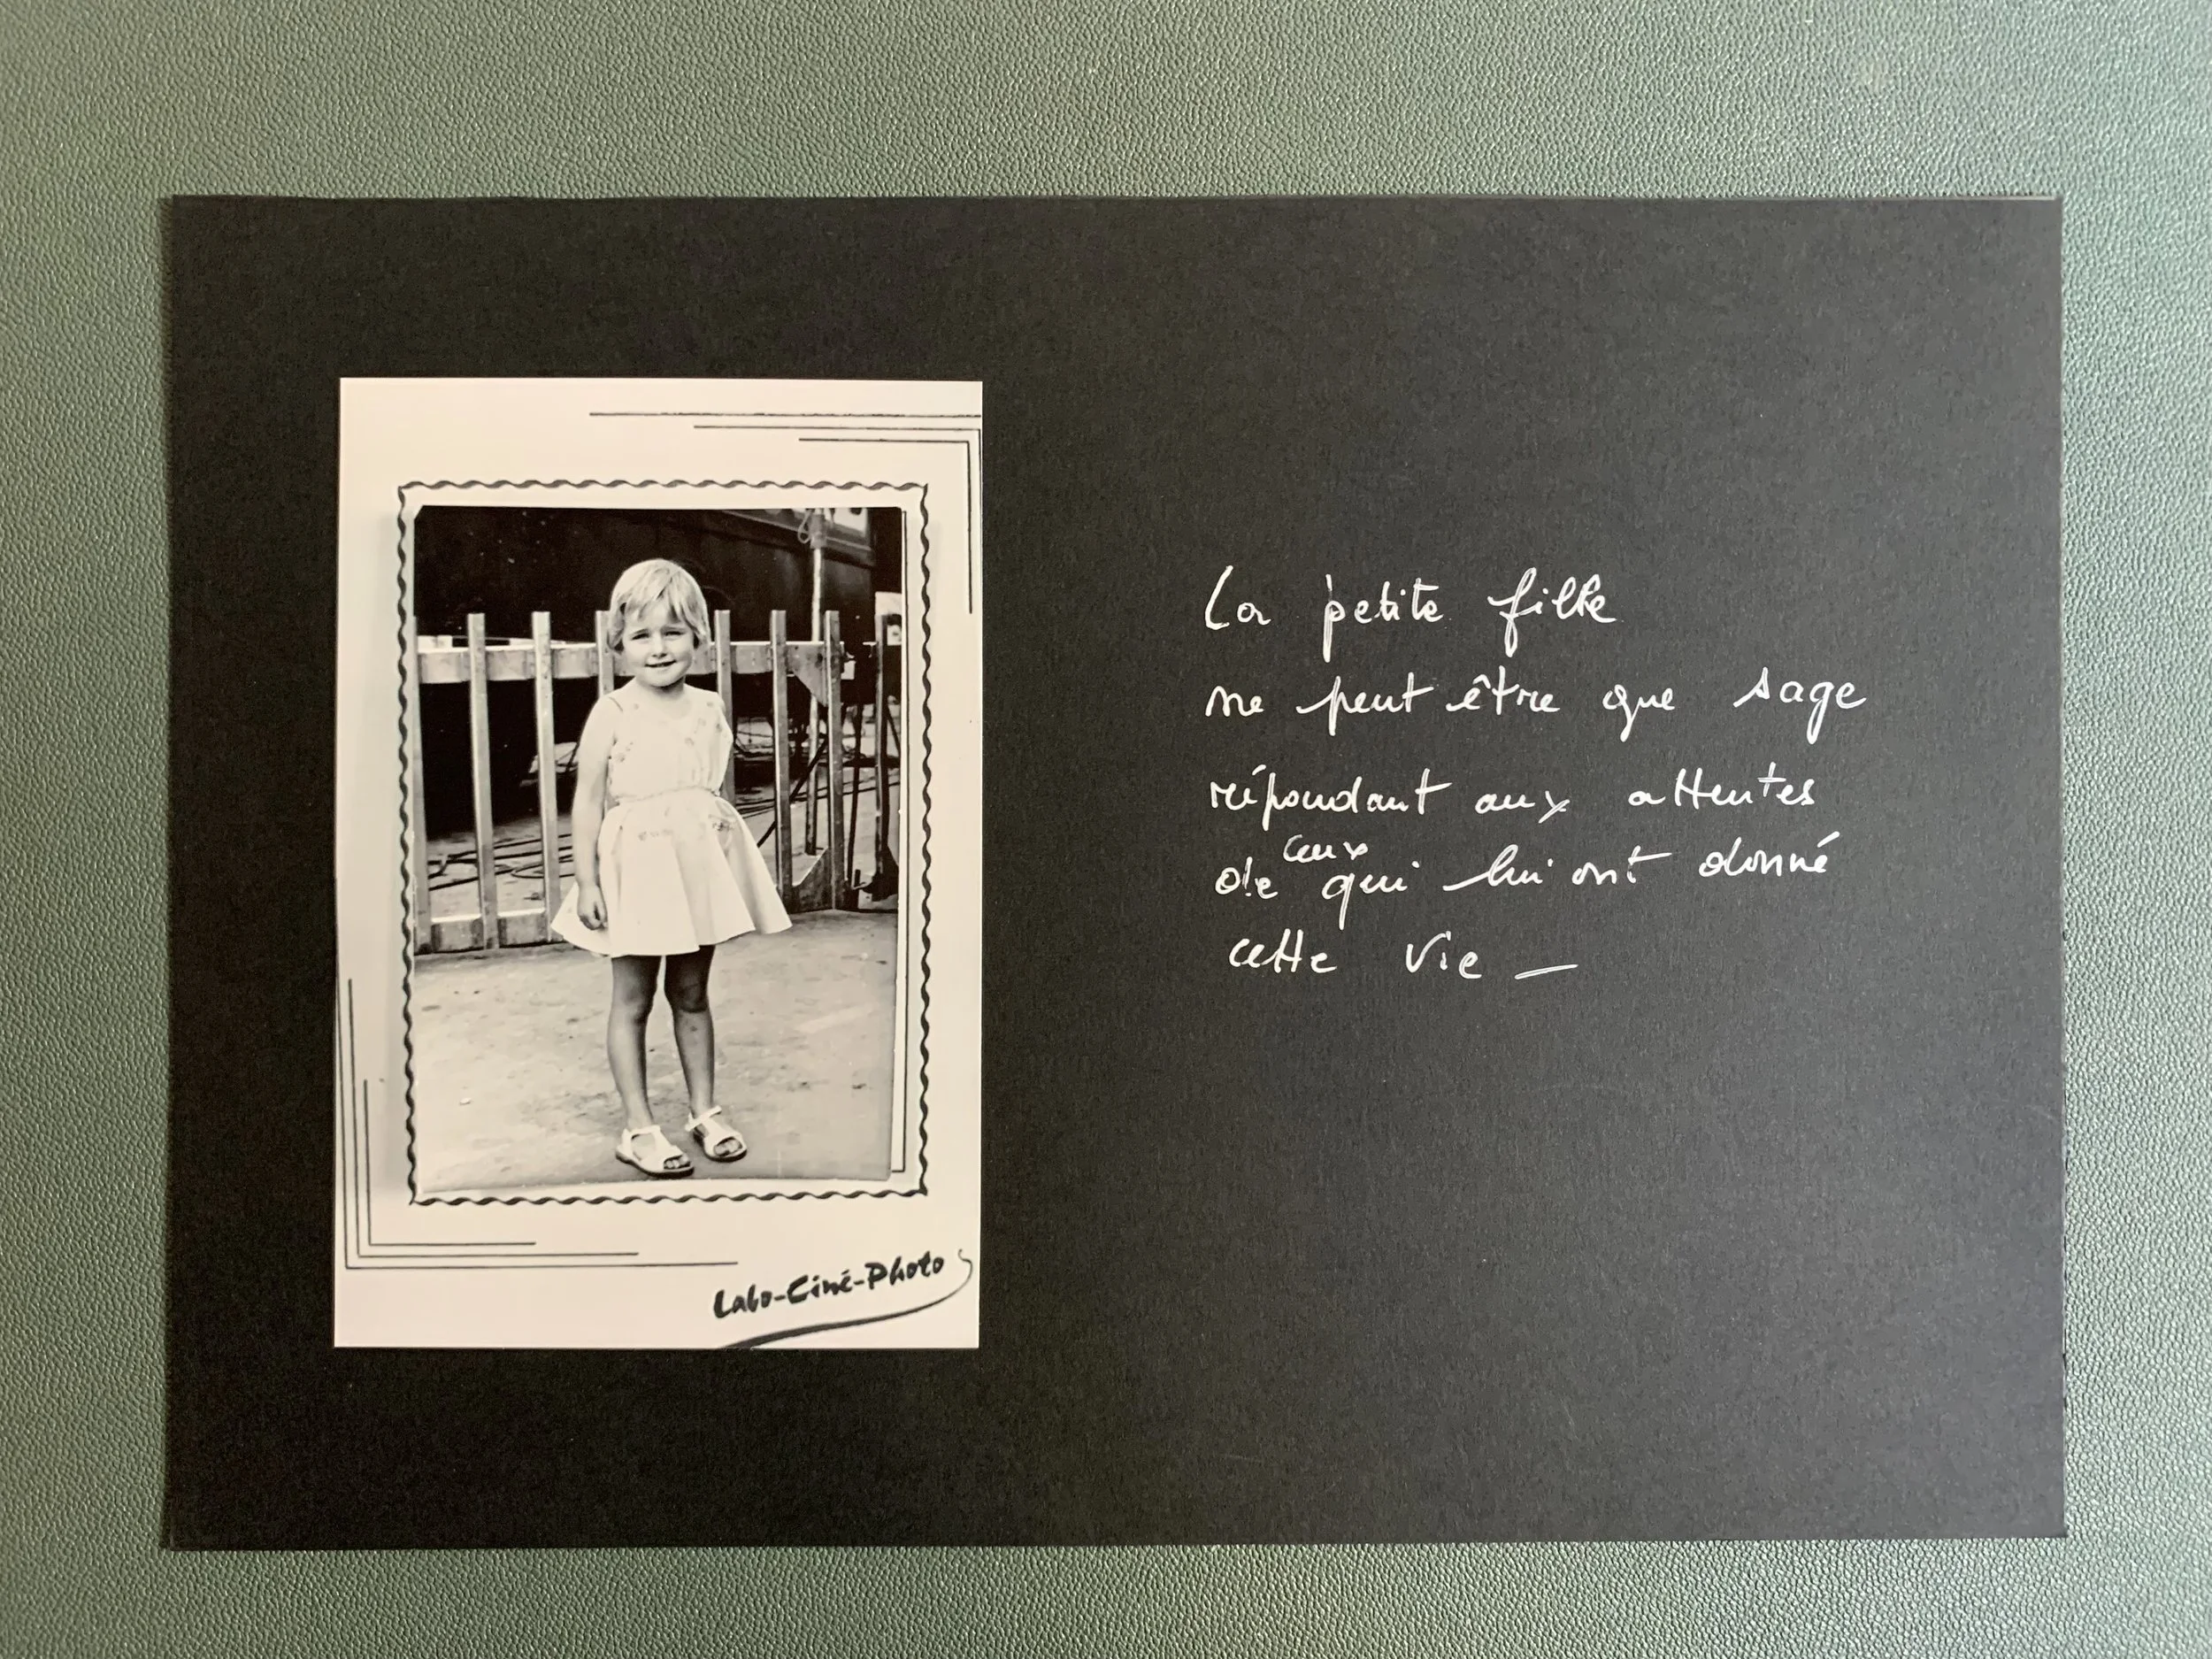 La petite fille
ne peut être que sage
répondant aux attentes
de ceux qui lui ont donné
cette vie —
Labo-Ciné-Photo